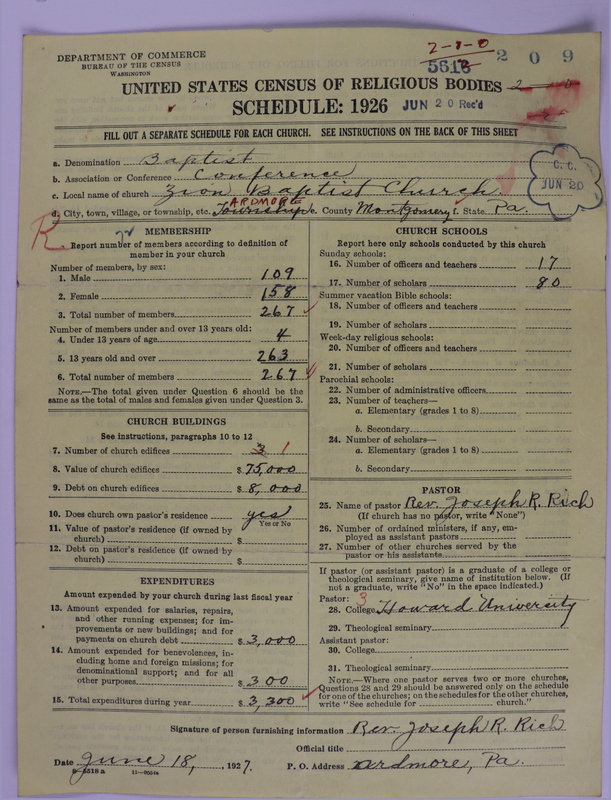 2-8-0
DEPARTMENT OF COMMERCE
BUREAU OF THE CENSUS
WASHINGTON
2 0 9
UNITED STATES CENSUS OF RELIGIOUS BODIES
SCHEDULE: 1926 JUN 20 Rec'd
FILL OUT A SEPARATE SCHEDULE FOR EACH CHURCH. SEE INSTRUCTIONS ON THE BACK OF THIS SHEET
a. Denomination Baptist
b. Association or Conference Conference
c. Local name of church Zion Baptist Church
C. C.
JUN 20
d. City, town, village, or township, etc. Township ARDMORE e. County Montgomery f. State Pa.
R.
MEMBERSHIP
Report number of members according to definition of
member in your church
Number of members, by sex:
1. Male 109
2. Female 158
3. Total number of members 267
Number of members under and over 13 years old:
4. Under 13 years of age 4
5. 13 years old and over 263
6. Total number of members 267
NOTE.—The total given under Question 6 should be
same as the total of males and females given under Question 3.
CHURCH BUILDINGS
See instructions, paragraphs 10 to 12
7. Number of church edifices 3 1
8. Value of church edifices $ 75,000
9. Debt on church edifices $ 8,000
10. Does church own pastor's residence? yes
Yes or No
11. Value of pastor's residence (if owned by
church) $
12. Debt on pastor's residence (if owned by
church) $
EXPENDITURES
Amount expended by your church during last fiscal year
13. Amount expended for salaries, repairs,
and other running expenses; for im-
provements or new buildings; and for
payments on church debt $ 3,000
14. Amount expended for benevolences, in-
cluding home and foreign missions; for
denominational support; and for all
other purposes $ 300
15. Total expenditures during year $ 3,300
CHURCH SCHOOLS
Report here only schools conducted by this church
Sunday schools:
16. Number of officers and teachers 17
17. Number of scholars 80
Summer vacation Bible schools:
18. Number of officers and teachers
19. Number of scholars
Week-day religious schools:
20. Number of officers and teachers
21. Number of scholars
Parochial schools:
22. Number of administrative officers
23. Number of teachers—
a. Elementary (grades 1 to 8)
b. Secondary
24. Number of scholars—
a. Elementary (grades 1 to 8)
b. Secondary
PASTOR
25. Name of pastor Rev. Joseph R. Rich
(If church has no pastor, write "None")
26. Number of ordained ministers, if any, em-
ployed as assistant pastors
27. Number of other churches served by the
pastor or his assistants
If pastor (or assistant pastor) is a graduate of a college or
theological seminary, give name of institution below. (If
not a graduate, write "No" in the space indicated.)
Pastor: 3
28. College Howard University
29. Theological seminary
Assistant pastor:
30. College
31. Theological seminary
NOTE.—Where one pastor serves two or more churches,
Questions 28 and 29 should be answered only on the schedule
for one of the churches; on the schedules for the other churches,
write "See schedule for church."
Signature of person furnishing information Rev. Joseph R. Rich
Official title
Date June 18, 1927. P. O. Address Ardmore, Pa.